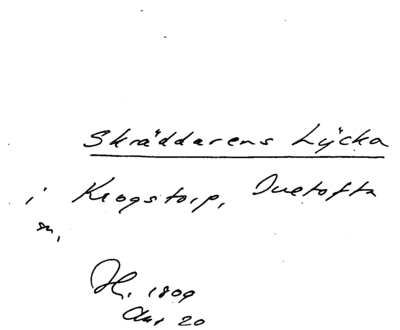 Skräddarens Lycka
i Krogstorp, Duetofta
sn,
H. 1809
Akt 20